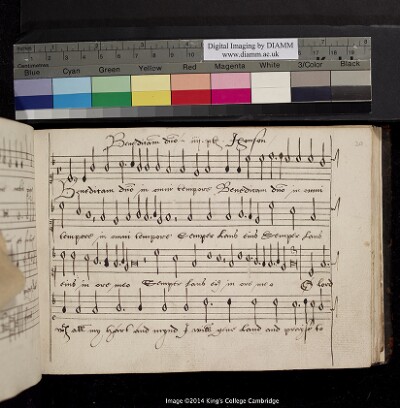 Digital Imaging by DIAMM
www.diamm.ac.uk
Centimetres
Blue Cyan Green Yellow Red Magenta White 3/Color Black
Benedicam dno iiij Jhonson
Benedicam dno in omni tempore Benedicam dno in omni
tempore in omni tempore Semper laus eius Semper laus
eius in ore meo Semper laus eius in ore meo O lord
wt all my hart and mynd I will geve laud and prayse to
Image ©2014 King's College Cambridge